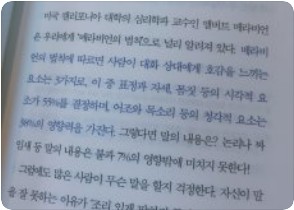 미국 캘리포니아 대학의 심리학과 교수인 앨버트 메라비언
은 우리에게 '메라비언의 법칙'으로 널리 알려져 있다. 메라비
언의 법칙에 따르면 사람이 대화 상대에게 호감을 느끼는
요소는 3가지로, 이 중 표정과 자세, 몸짓 등의 시각적 요
소가 55%를 결정하며, 어조와 목소리 등의 청각적 요소는
38%의 영향력을 가진다. 그렇다면 말의 내용은? 논리나 짜
임새 등 말의 내용은 불과 7%의 영향밖에 미치지 못한다!
그럼에도 많은 사람이 무슨 말을 할지 걱정한다. 자신이 말
을 잘 못하는 이유가 '조리 있게